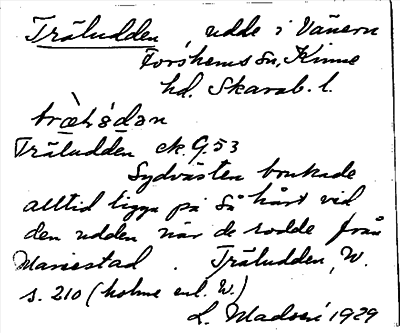 Träludden, udde i Vänern
Forshems sn, Kinne
hd. Skarab. l.
Träludden ek. 9.53
Sydvästen brukade
alltid ligga på så hårt vid
den udden när de rodde från
Mariestad. Träludden, W.
s. 210 (holme enl. W.)
L. Madsén 1929